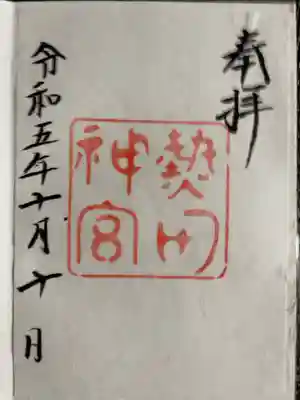 奉拝
熱田神宮
令和五年十月十日